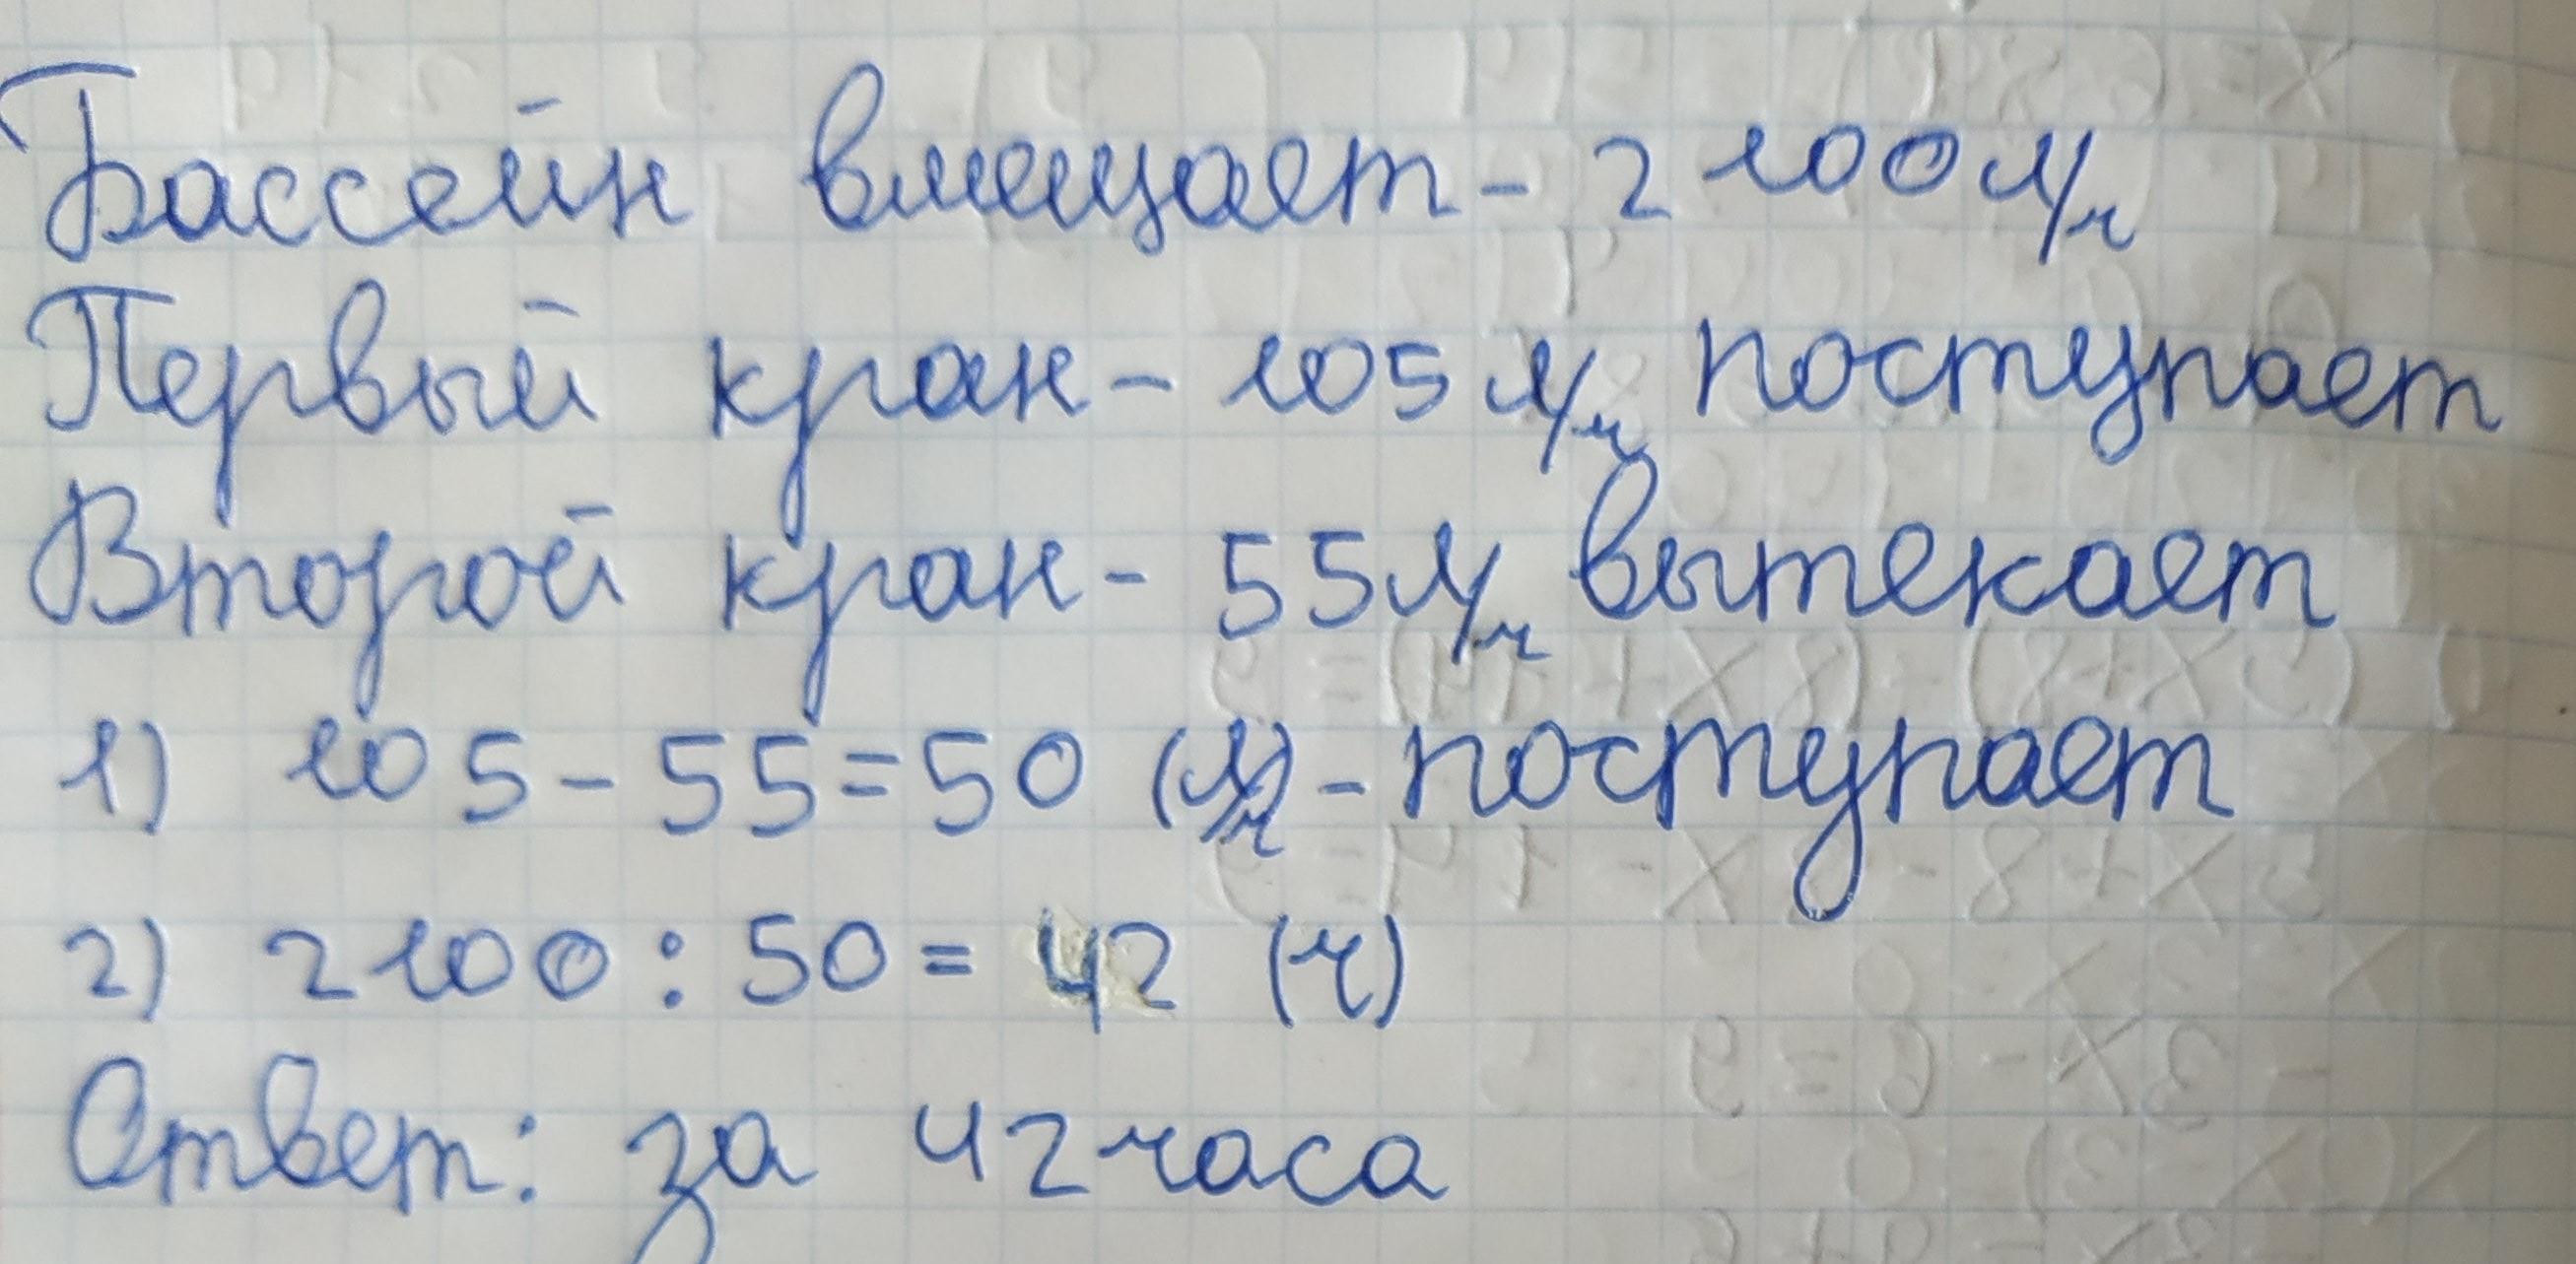 Бассейн вмещает - 2 100 л/ч
Первый кран - 105 л/ч поступает
Второй кран - 55 л/ч вытекает
1) 105 - 55 = 50 (л/ч) - поступает
2) 2 100 : 50 = 42 (ч)
Ответ: за 42 часа